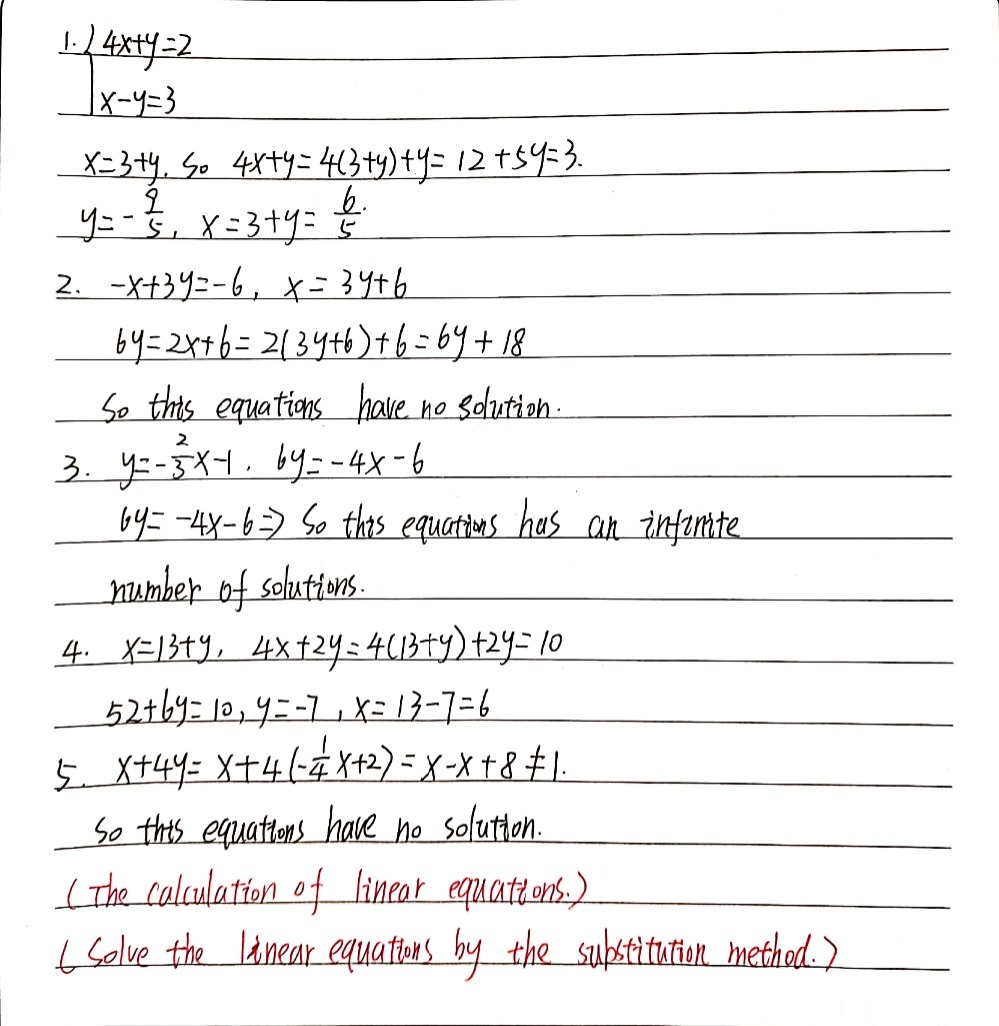 1. { 4x+y=2
x-y=3
x=3+y. So 4x+y=4(3+y)+y=12+5y=3.
y=-9/5, x=3+y=6/5.
2. -x+3y=-6, x=3y+6
6y=2x+6=2(3y+6)+6=6y+18
So this equations have no solution.
3. y=-2/3x-1. 6y=-4x-6
6y=-4x-6=> So this equations has an infinite
number of solutions.
4. x=13+y, 4x+2y=4(13+y)+2y=10
52+6y=10, y=-7, x=13-7=6
5. x+4y=x+4(-1/4x+2)=x-x+8≠1.
So this equations have no solution.
(The calculation of linear equations.)
(Solve the linear equations by the substitution method.)